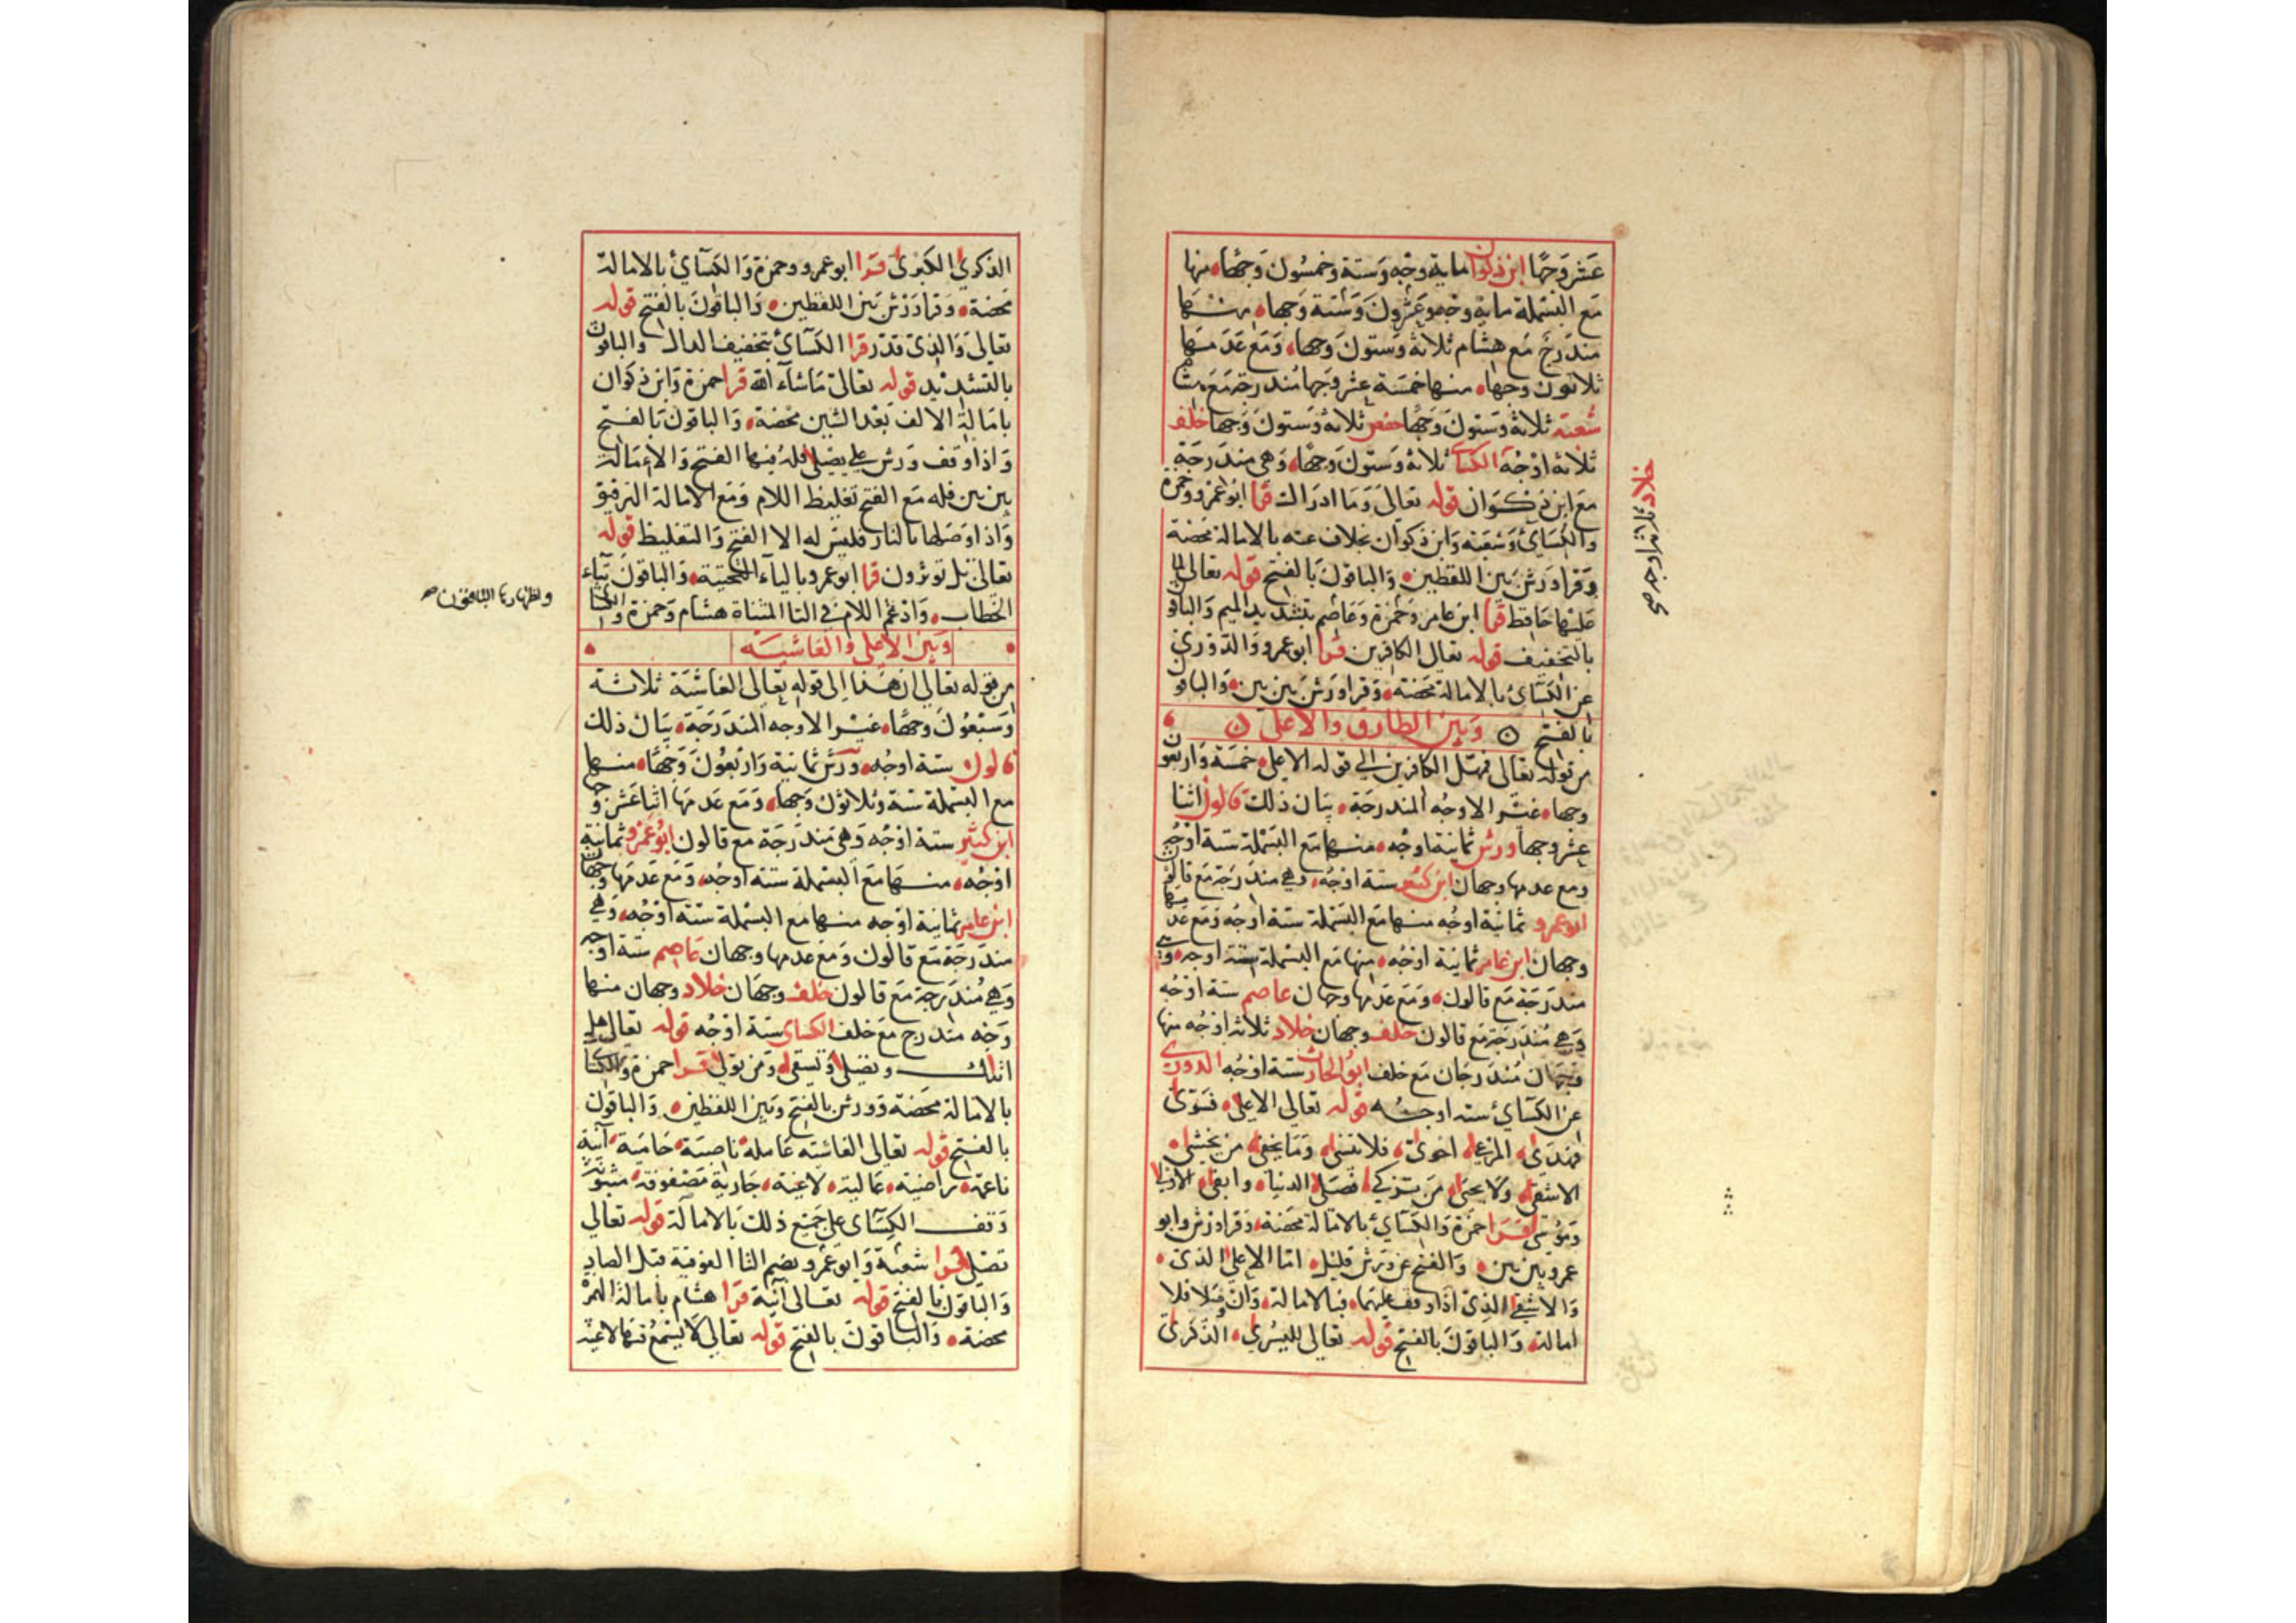 عشر وجها ابن ذكوان ماية وجه وستة وخمسون وجها منها
مع البسملة ماية وجه وعشرون وستة وجها منها
مندرج مع هشام ثلاثة وستون وجها ومع عدمها
ثلاثون وجها منها خمسة عشر وجها مندرجة مع هشام
شعبة ثلاثة وستون وجها حفص ثلاثة وستون وجها خلف
ثلاثة اوجه الكساى ثلاثة وستون وجها وهي مندرجة
مع ابن ذكوان قوله تعالى وما ادراك قرا ابو عمرو وحمزة
والكسائي وشعبة وابن ذكوان بخلاف عنه بالامالة محضة
وقرا ورش بين اللفظين والباقون بالفتح قوله تعالى لما
عليها حافظ قرا ابن عامر وحمزة وعاصم بتشديد الميم والباقون
بالتخفيف قوله تعالى الكافرين قرا ابو عمرو والدوري
عن الكسائي بالامالة محضة وقرا ورش بين بين والباقون
بالفتح وبين الطارق والاعلى
من قوله تعالى فمهل الكافرين الي قوله الاعلى خمسة واربعون
وجها غير الاوجه المندرجة بيان ذلك قالون اثنا
عشر وجها ورش ثمانية اوجه منها مع البسملة ستة اوجه
ومع عدمها وجهان ابن كثير ستة اوجه وهي مندرجة مع قالون
ابو عمرو ثمانية اوجه منها مع البسملة ستة اوجه ومع عدمها
وجهان ابن عامر ثمانية اوجه منها مع البسملة ستة اوجه وهي
مندرجة مع قالون ومع عدمها وجهان عاصم ستة اوجه
وهي مندرجة مع قالون خلف وجهان خلاد ثلاثة اوجه منها
وجهان مندرجان مع خلف ابو الحارث ستة اوجه الدوري
عن الكسائي ستة اوجه قوله تعالي الاعلى فسوى
فهدى المرعى احوى فلا تنسى وما يخفى من يخشى
الاشقى ولا يحيى من تزكى فصلى الدنيا وابقى الاولى
وموسى قرا حمزة والكسائي بالامالة محضة وقرا ورش وابو
عمرو بين بين والفتح عن ورش قليل اما الاعلى الذى
والاشقى الذى اذا وقف عليهما فبالامالة وان وصلا فلا
امالة والباقون بالفتح قوله تعالى لليسرى الذكرى
خلاد ثلاثة اوجه صح
الذكرى الكبرى قرا ابو عمرو وحمزة والكسائي بالامالة
محضة وقرا ورش بين اللفظين والباقون بالفتح قوله
تعالى والذى قدر قرا الكسائي بتخفيف الدال والباقون
بالتشديد قوله تعالى ما شاء الله قرا حمزة وابن ذكوان
بامالة الالف بعد الشين محضة والباقون بالفتح
واذا وقف ورش على يصلى فله فيها الفتح والامالة
بين بين فله مع الفتح تغليظ اللام ومع الامالة الترقيق
واذا وصلها بالنار فليس له الا الفتح والتغليظ قوله
تعالى بل توثرون قرا ابو عمرو بالياء التحتية والباقون بتاء
الخطاب وادغم اللام في التا المثناة هشام وحمزة والكسائي
واظهارها الباقون صح
وبين الاعلى والغاشية
من قوله تعالى ان هذا إلى قوله تعالى الغاشية ثلاثة
وسبعون وجها غير الاوجه المندرجة بيان ذلك
قالون ستة اوجه ورش ثمانية واربعون وجها منها
مع البسملة ستة وثلاثون وجها ومع عدمها اثنا عشر وجها
ابن كثير ستة اوجه وهي مندرجة مع قالون ابو عمرو ثمانية
اوجه منها مع البسملة ستة اوجه ومع عدمها وجهان
ابن عامر ثمانية اوجه منها مع البسملة ستة اوجه وهي
مندرجة مع قالون ومع عدمها وجهان عاصم ستة اوجه
وهي مندرجة مع قالون خلف وجهان خلاد وجهان منها
وجه مندرج مع خلف الكساى ستة اوجه قوله تعالى هل
اتاك وتصلى وتسقى ومن تولى قرا حمزة والكسائي
بالامالة محضة وورش بالفتح وبين اللفظين والباقون
بالفتح قوله تعالى الغاشية عاملة ناصبة حامية آنية
ناعمة راضية عالية لاغية جارية مصفوفة مبثوثة
وقف الكسآى على جميع ذلك بالامالة قوله تعالي
تصلى قرا شعبة وابو عمرو بضم التا الفوقية قبل الصاد
والباقون بالفتح قوله تعالى آنية قرا هشام بامالة الهمزة
محضة والباقون بالفتح قوله تعالى لا يسمع فيها لاغية